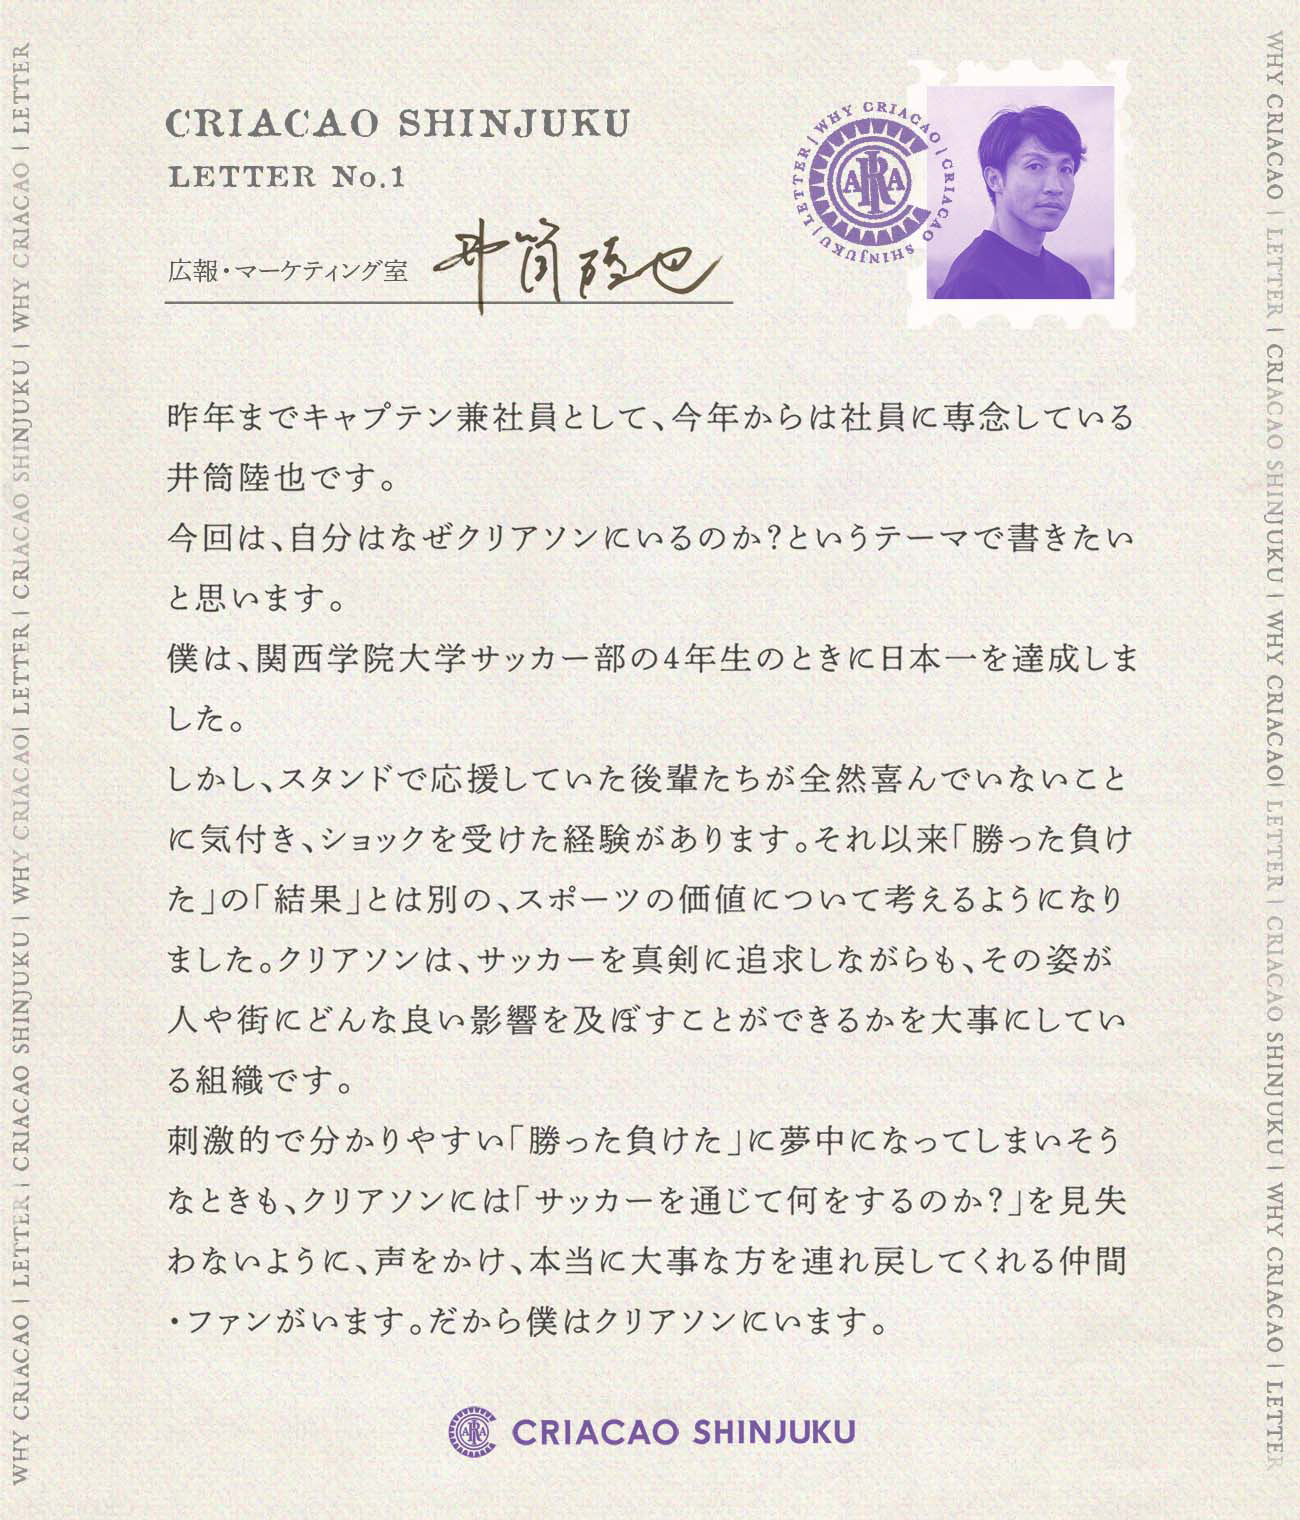 CRIACAO SHINJUKU
LETTER No.1
広報・マーケティング室 井筒陸也
WHY CRIACAO | CRIACAO SHINJUKU | LETTER |
ARA
昨年までキャプテン兼社員として、今年からは社員に専念している
井筒陸也です。
今回は、自分はなぜクリアソンにいるのか?というテーマで書きたい
と思います。
僕は、関西学院大学サッカー部の4年生のときに日本一を達成しま
した。
しかし、スタンドで応援していた後輩たちが全然喜んでいないこと
に気付き、ショックを受けた経験があります。それ以来「勝った負け
た」の「結果」とは別の、スポーツの価値について考えるようになり
ました。クリアソンは、サッカーを真剣に追求しながらも、その姿が
人や街にどんな良い影響を及ぼすことができるかを大事にしてい
る組織です。
刺激的で分かりやすい「勝った負けた」に夢中になってしまいそう
なときも、クリアソンには「サッカーを通じて何をするのか?」を見失
わないように、声をかけ、本当に大事な方を連れ戻してくれる仲間
・ファンがいます。だから僕はクリアソンにいます。
ARA CRIACAO SHINJUKU
WHY CRIACAO | LETTER | CRIACAO SHINJUKU | WHY CRIACAO| LETTER | CRIACAO SHINJUKU | WHY CRIACAO | LETTER
WHY CRIACAO | LETTER | CRIACAO SHINJUKU | WHY CRIACAO| LETTER | CRIACAO SHINJUKU | WHY CRIACAO | LETTER